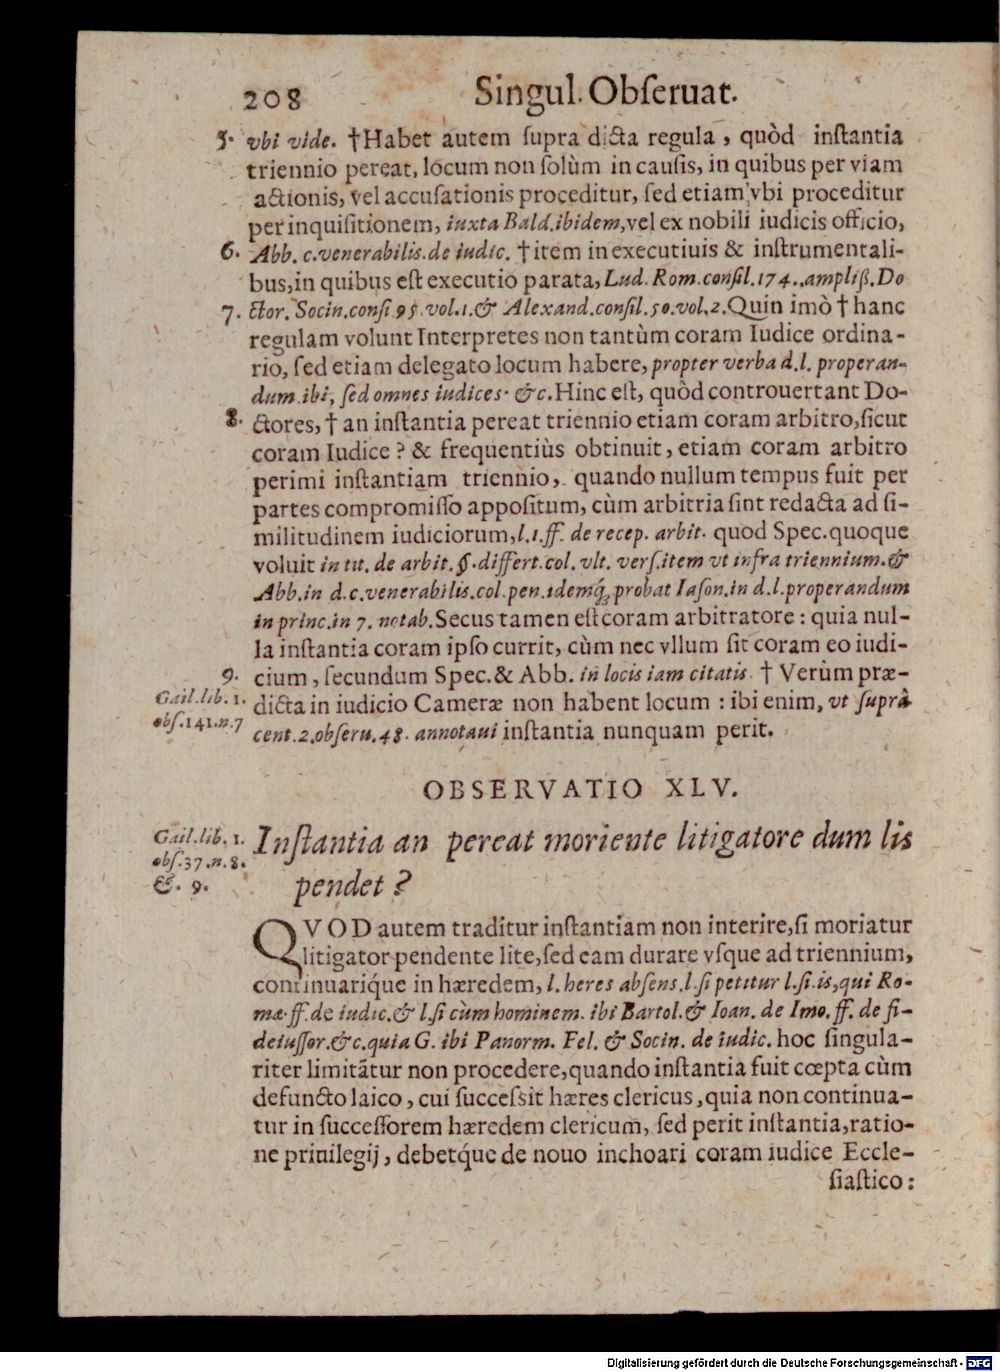 208 Singul. Obſeruat.
5. vbi vide. †Habet autem ſupra dicta regula, quòd inſtantia
triennio pereat, locum non ſolùm in cauſis, in quibus per viam
actionis, vel accuſationis proceditur, ſed etiam vbi proceditur
per inquiſitionem, iuxta Bald. ibidem, vel ex nobili iudicis officio,
6. Abb. c. venerabilis. de iudic. †item in executiuis & inſtrumentali-
bus, in quibus eſt executio parata, Lud. Rom. conſil. 174. ampliß. Do
7. ctor. Socin. conſi. 95. vol. 1. & Alexand. conſil. 50. vol. 2. Quin imò † hanc
regulam volunt Interpretes non tantùm coram Iudice ordina-
rio, ſed etiam delegato locum habere, propter verba d. l. properan-
dum. ibi, ſed omnes iudices. &c. Hinc eſt, quòd controuertant Do-
8. ctores, † an inſtantia pereat triennio etiam coram arbitro, ſicut
coram Iudice? & frequentiùs obtinuit, etiam coram arbitro
perimi inſtantiam triennio, quando nullum tempus fuit per
partes compromiſſo appoſitum, cùm arbitria ſint redacta ad ſi-
militudinem iudiciorum, l. 1. ff. de recep. arbit. quod Spec. quoque
voluit in tit. de arbit. §. differt. col. vlt. verſ. item vt infra triennium. &
Abb. in d. c. venerabilis. col. pen. idemq́; probat Iaſon. in d. l. properandum
in princ. in 7. notab. Secus tamen eſt coram arbitratore: quia nul-
la inſtantia coram ipſo currit, cùm nec vllum ſit coram eo iudi-
9. cium, ſecundum Spec. & Abb. in locis iam citatis. † Verùm præ-
Gail. lib. 1. dicta in iudicio Cameræ non habent locum: ibi enim, vt ſuprà
obſ. 141. n. 7 cent. 2. obſeru. 48. annotaui inſtantia nunquam perit.
OBSERVATIO XLV.
Gail. lib. 1. Inſtantia an pereat moriente litigatore dum lis
obſ. 37. n. 8.
&. 9. pendet?
QVOD autem traditur inſtantiam non interire, ſi moriatur
litigator pendente lite, ſed eam durare vſque ad triennium,
continuariq́ue in hæredem, l. heres abſens. l. ſi petitur l. ſi. is, qui Ro-
mæ. ff. de iudic. & l. ſi cùm hominem. ibi Bartol. & Ioan. de Imo. ff. de fi-
deiuſſor. & c. quia G. ibi Panorm. Fel. & Socin. de iudic. hoc ſingula-
riter limitãtur non procedere, quando inſtantia fuit cœpta cùm
defuncto laico, cui ſucceſsit hæres clericus, quia non continua-
tur in ſucceſſorem hæredem clericum, ſed perit inſtantia, ratio-
ne priuilegij, debetq́ue de nouo inchoari coram iudice Eccle-
ſiaſtico:
Digitalisierung gefördert durch die Deutsche Forschungsgemeinschaft - DFG